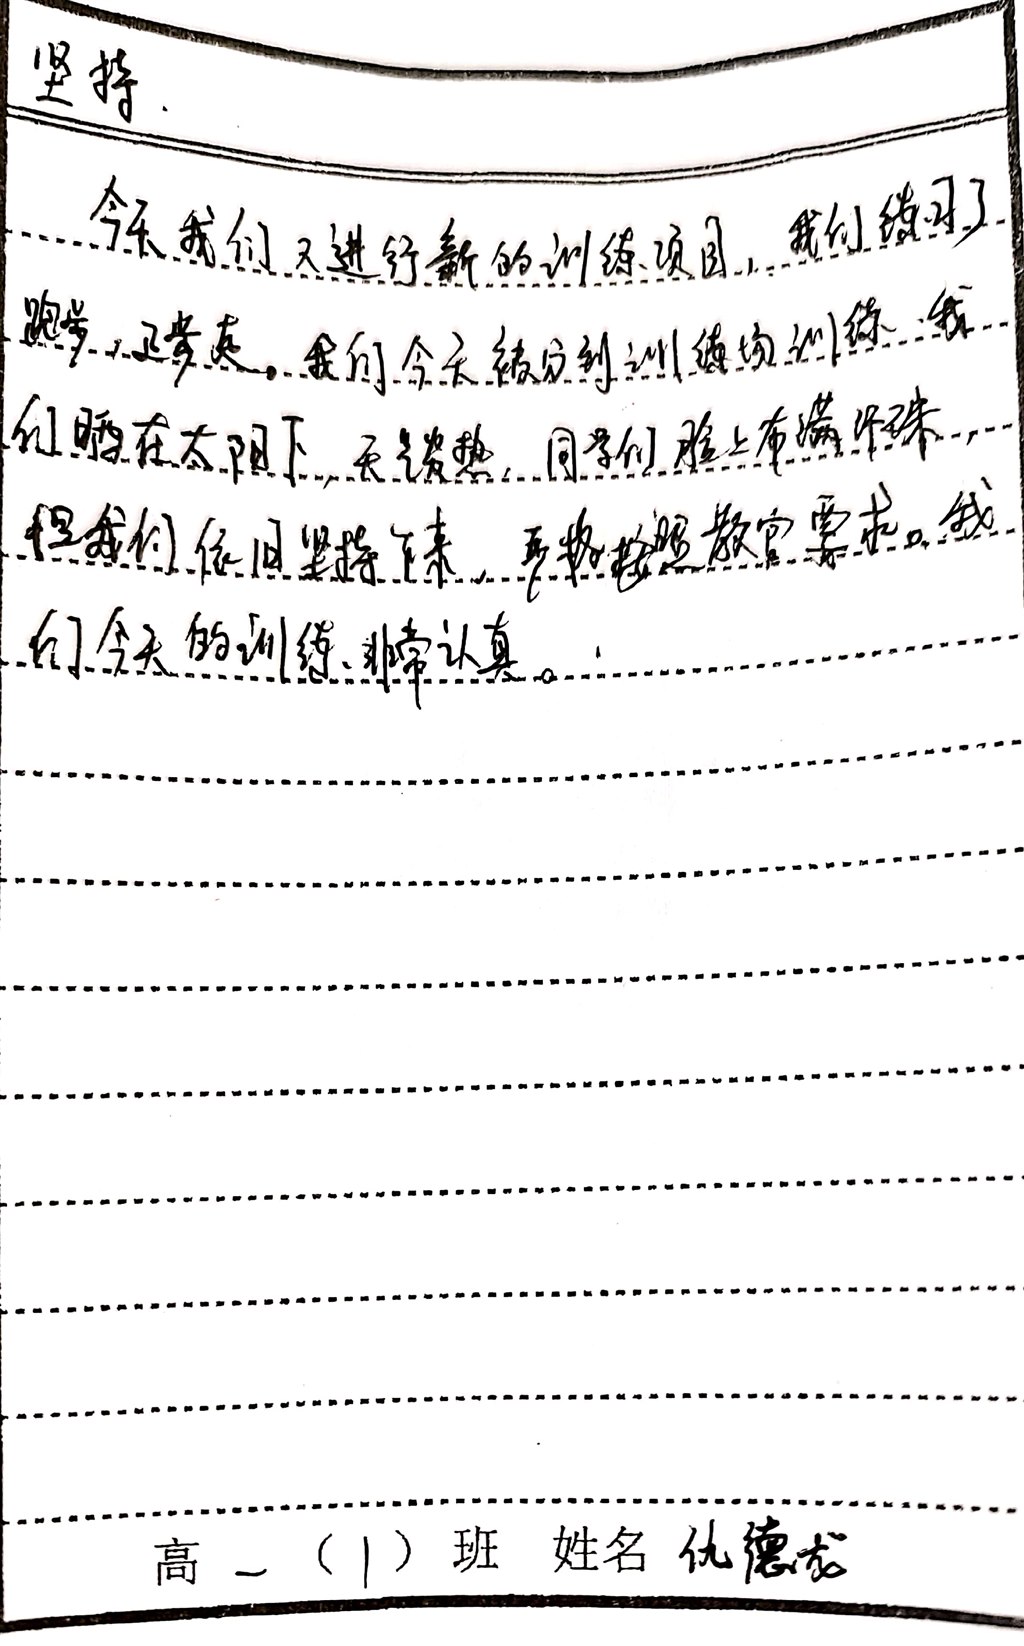 坚持.
今天我们又进行新的训练项目,我们练习了
跑步,正步走。我们今天被分到训练场训练,我
们晒在太阳下,天气炎热,同学们脸上布满汗珠,
但我们依旧坚持下来,严格按照教官要求。我
们今天的训练非常认真。
高一(1)班 姓名 仇德龙